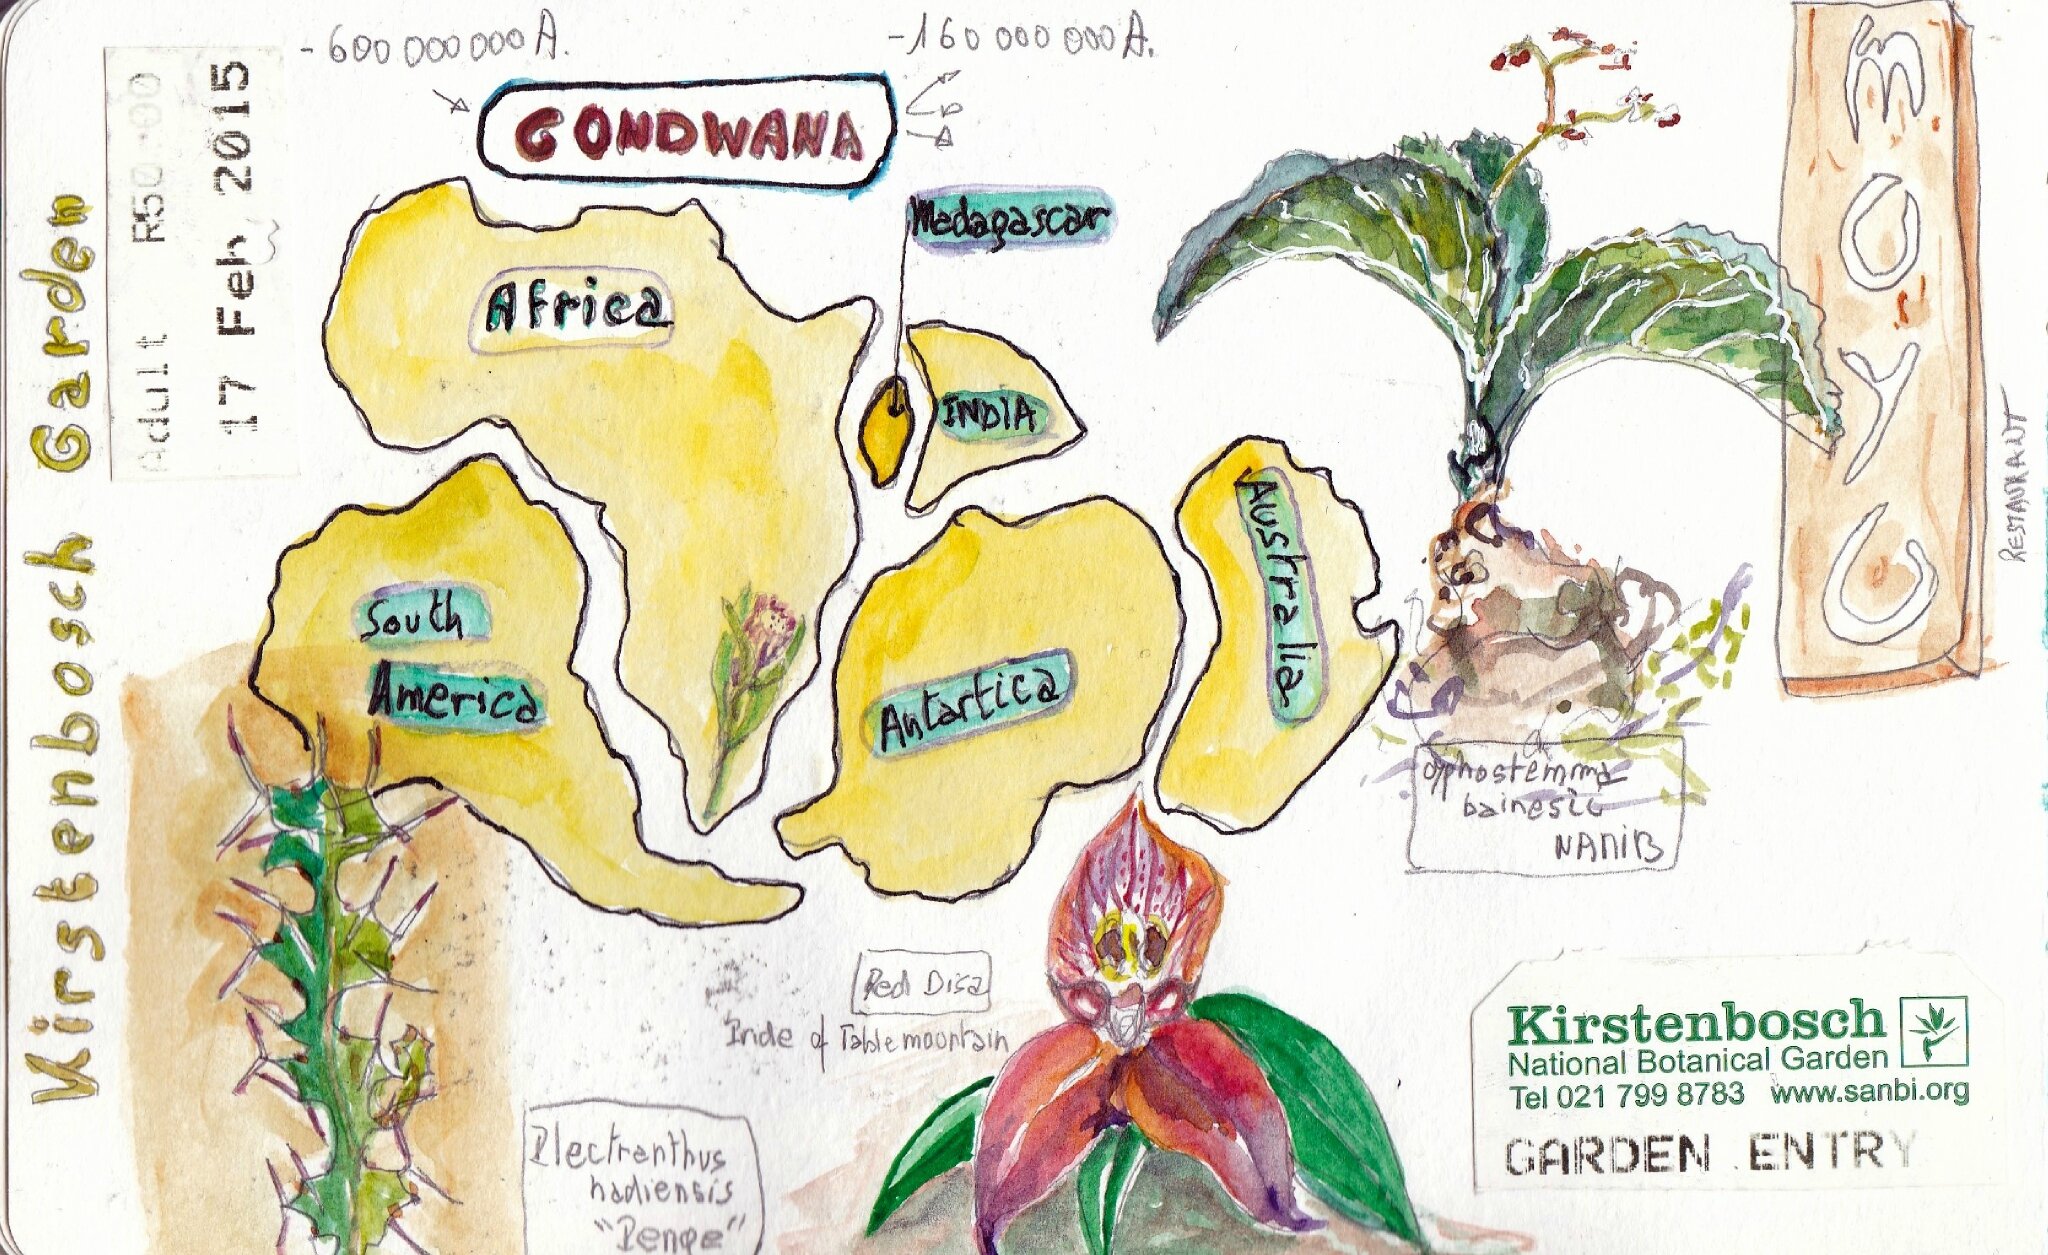 -600 000 000 A.
-160 000 000 A.
GONDWANA
Kirstenbosch Garden
Adult R50.00
17 Feb 2015
Madagascar
Africa
INDIA
Australia
South
America
Antartica
MOYO
RESTAURANT
bainesii
NAMIB
Red Disa
of Table mountain
Plectranthus
hadiensis
"Penge"
Kirstenbosch
National Botanical Garden
Tel 021 799 8783 www.sanbi.org
GARDEN ENTRY